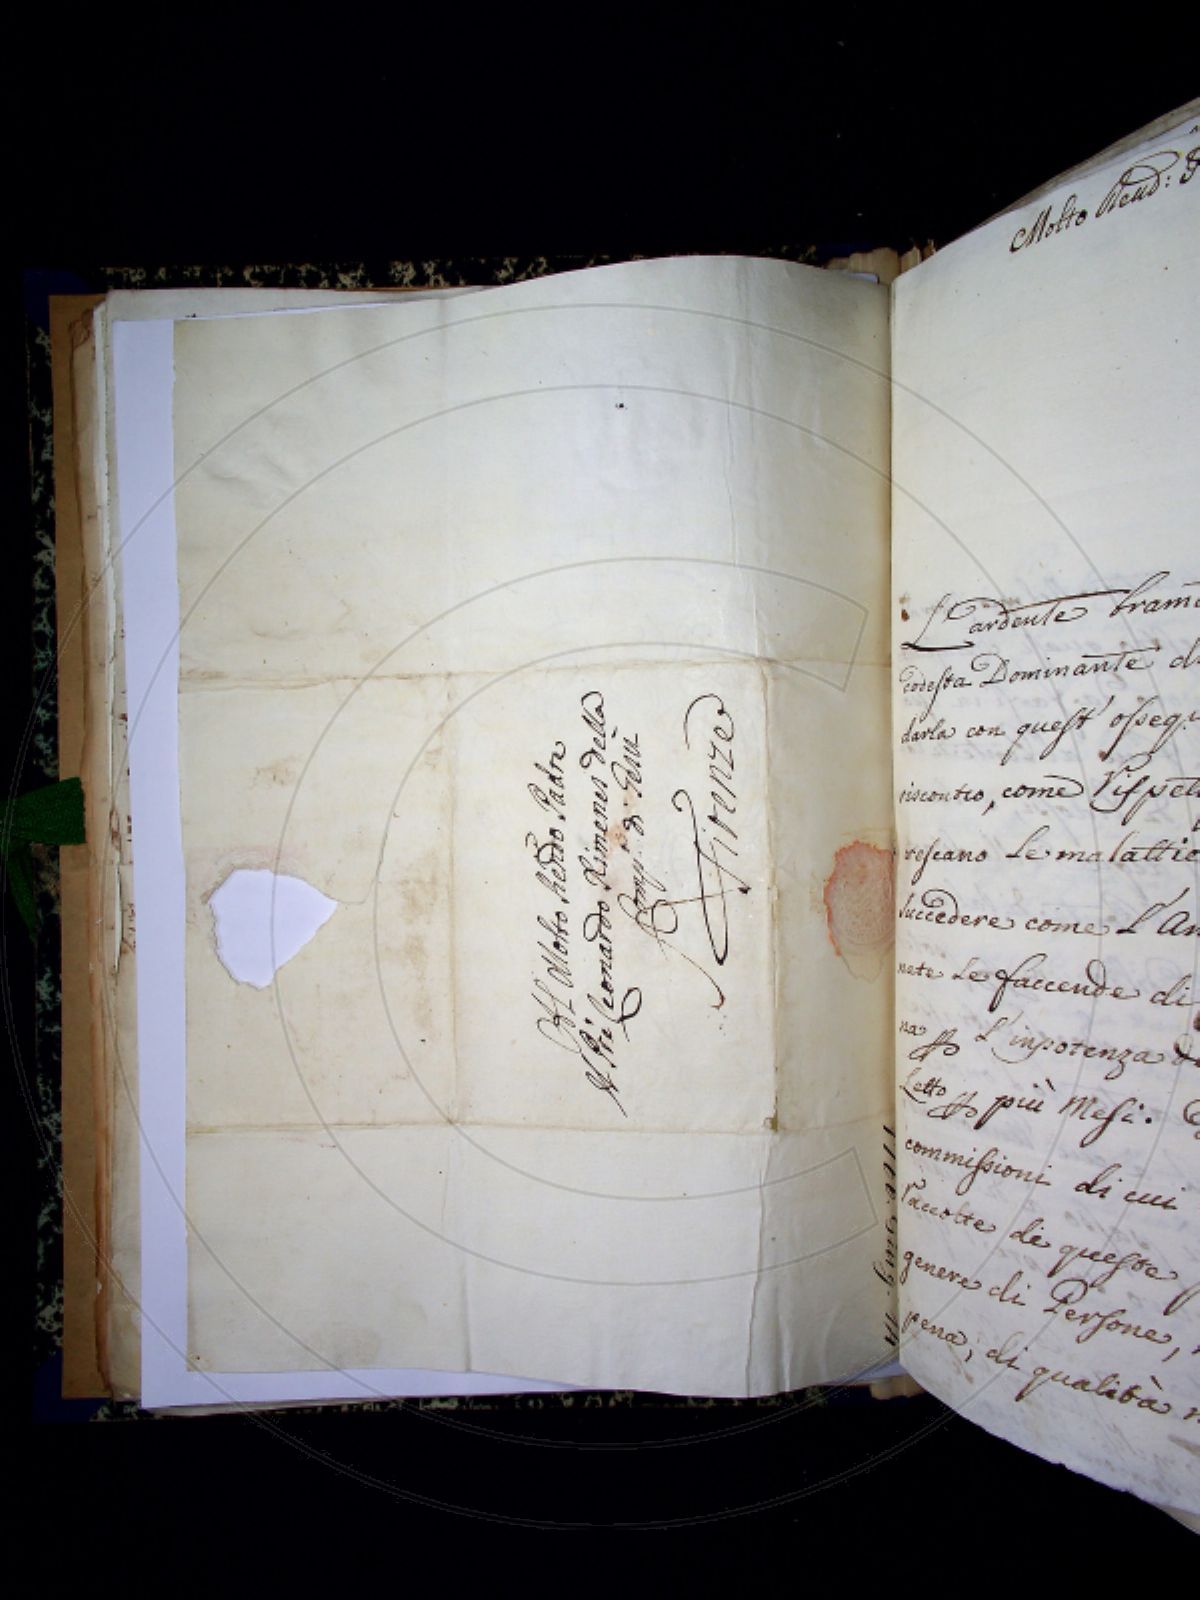 Al Molto Revdo Padre
Il Pre Leonardo Ximenes della
Comp: di Gesù
Firenze
Molto Revd:
L'ardente brama
codesta Dominante di
darla con quest' ossequ
riscontro, come rispet
rescano le malattie
succedere come L'An
nate le faccende di
na L'inpotenza
Letto più Mesi.
commissioni di cui
raccolte di queste
genere di Persone,
pena, di qualità